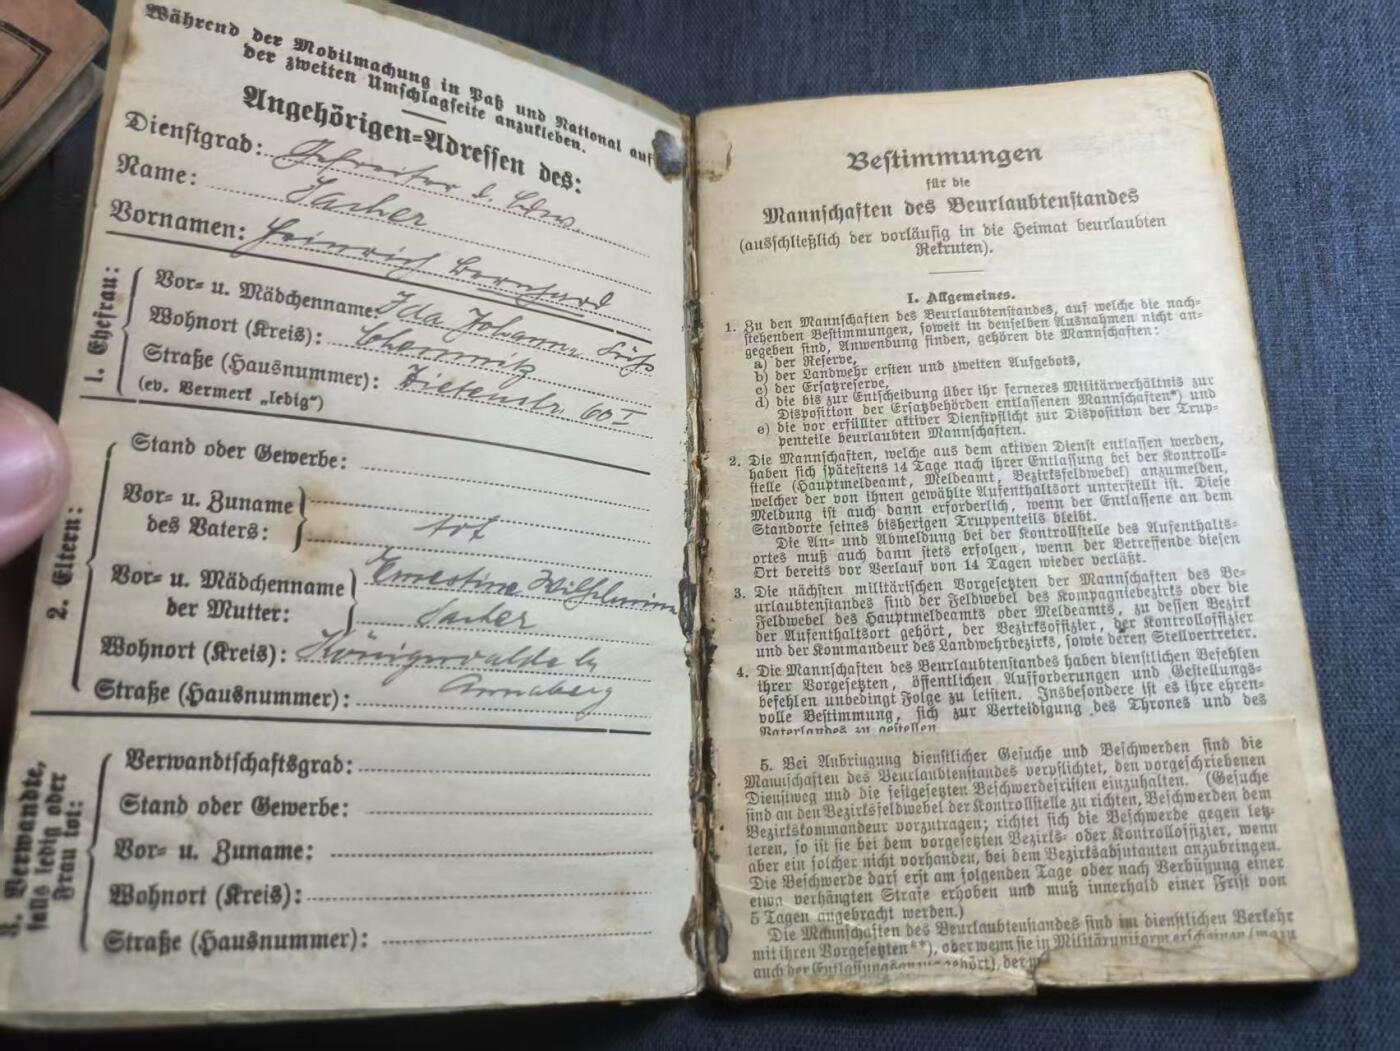 Während der Mobilmachung in Paß und National auf
der zweiten Umschlagseite anzukleben.
Angehörigen-Adressen des:
Dienstgrad: Gefreiter d. Ldw.
Name: Sacher
Vornamen: Heinrich Bernhard
1. Ehefrau:
Vor- u. Mädchenname: Ida Johanne
Wohnort (Kreis): Chemnitz
Straße (Hausnummer): Zietenstr. 60 I
(ev. Vermerk „ledig“)
2. Eltern:
Stand oder Gewerbe:
Vor- u. Zuname
des Vaters: tot
Vor- u. Mädchenname Ernestine Wilhelmine
der Mutter: Sacher
Wohnort (Kreis): Königswalde b/
Annaberg
Straße (Hausnummer):
3. Verwandte,
falls ledig oder
Frau tot:
Verwandtschaftsgrad:
Stand oder Gewerbe:
Vor- u. Zuname:
Wohnort (Kreis):
Straße (Hausnummer):
Bestimmungen
für die
Mannschaften des Beurlaubtenstandes
(ausschließlich der vorläufig in die Heimat beurlaubten
Rekruten).
I. Allgemeines.
1. Zu den Mannschaften des Beurlaubtenstandes, auf welche die nach-
stehenden Bestimmungen, soweit in denselben Ausnahmen nicht an-
gegeben sind, Anwendung finden, gehören die Mannschaften:
a) der Reserve,
b) der Landwehr ersten und zweiten Aufgebots,
c) der Ersatzreserve,
d) die bis zur Entscheidung über ihr ferneres Militärverhältnis zur
Disposition der Ersatzbehörden entlassenen Mannschaften*) und
e) die vor erfüllter aktiver Dienstpflicht zur Disposition der Trup-
penteile beurlaubten Mannschaften.
2. Die Mannschaften, welche aus dem aktiven Dienst entlassen werden,
haben sich spätestens 14 Tage nach ihrer Entlassung bei der Kontroll-
stelle (Hauptmeldeamt, Meldeamt, Bezirksfeldwebel) anzumelden,
welcher der von ihnen gewählte Aufenthaltsort unterstellt ist. Diese
Meldung ist auch dann erforderlich, wenn der Entlassene an dem
Standorte seines bisherigen Truppenteils bleibt.
Die An- und Abmeldung bei der Kontrollstelle des Aufenthalts-
ortes muß auch dann stets erfolgen, wenn der Betreffende diesen
Ort bereits vor Verlauf von 14 Tagen wieder verläßt.
3. Die nächsten militärischen Vorgesetzten der Mannschaften des Be-
urlaubtenstandes sind der Feldwebel des Kompagniebezirks oder die
Feldwebel des Hauptmeldeamts oder Meldeamts, zu dessen Bezirk
der Aufenthaltsort gehört, der Bezirksoffizier, der Kontrolloffizier
und der Kommandeur des Landwehrbezirks, sowie deren Stellvertreter.
4. Die Mannschaften des Beurlaubtenstandes haben dienstlichen Befehlen
ihrer Vorgesetzten, öffentlichen Aufforderungen und Gestellungs-
befehlen unbedingt Folge zu leisten. Insbesondere ist es ihre ehren-
volle Bestimmung, sich zur Verteidigung des Thrones und des
Vaterlandes zu gestellen
5. Bei Anbringung dienstlicher Gesuche und Beschwerden sind die
Mannschaften des Beurlaubtenstandes verpflichtet, den vorgeschriebenen
Dienstweg und die festgesetzten Beschwerdefristen einzuhalten. (Gesuche
sind an den Bezirksfeldwebel der Kontrollstelle zu richten, Beschwerden dem
Bezirkskommandeur vorzutragen; richtet sich die Beschwerde gegen letz-
teren, so ist sie bei dem vorgesetzten Bezirks- oder Kontrolloffizier, wenn
aber ein solcher nicht vorhanden, bei dem Bezirksadjutanten anzubringen.
Die Beschwerde darf erst am folgenden Tage oder nach Verbüßung einer
etwa verhängten Strafe erhoben und muß innerhalb einer Frist von
5 Tagen angebracht werden.)
Die Mannschaften des Beurlaubtenstandes sind im dienstlichen Verkehr
mit ihren Vorgesetzten**), oder wenn sie in Militäruniform erscheinen (wozu
auch der Entlassungsanzug gehört), der